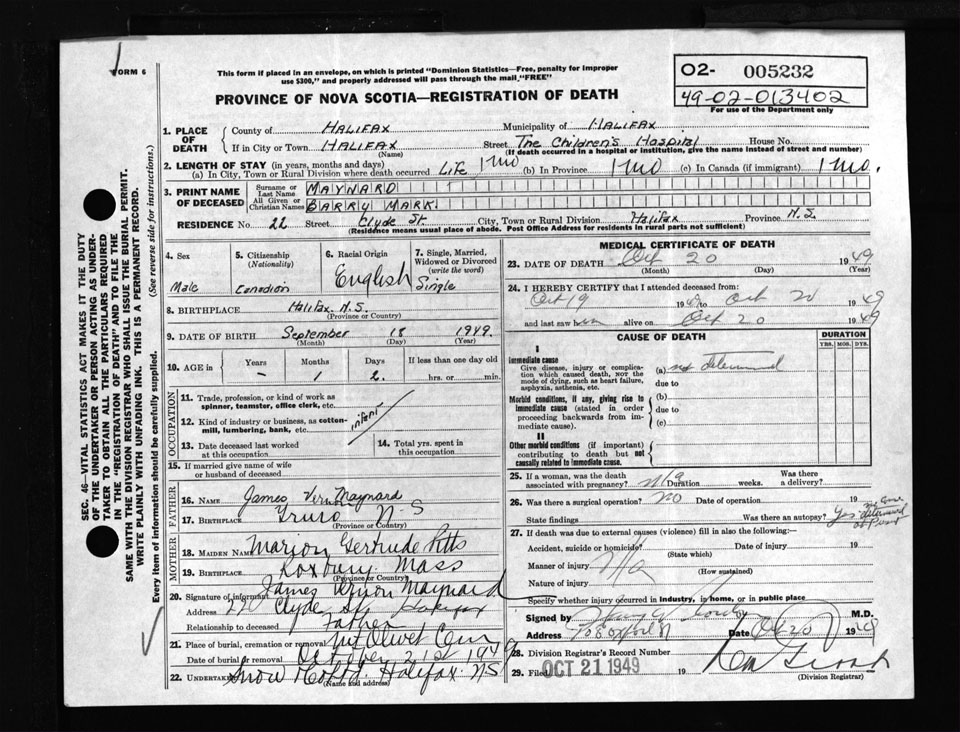 FORM 6
This form if placed in an envelope, on which is printed "Dominion Statistics—Free, penalty for improper
use $300," and properly addressed will pass through the mail "FREE"
PROVINCE OF NOVA SCOTIA—REGISTRATION OF DEATH
02- 005232
49-02-013402
For use of the Department only
SEC. 46—VITAL STATISTICS ACT MAKES IT THE DUTY
OF THE UNDERTAKER OR PERSON ACTING AS UNDER-
TAKER TO OBTAIN ALL THE PARTICULARS REQUIRED
IN THE "REGISTRATION OF DEATH" AND TO FILE THE
SAME WITH THE DIVISION REGISTRAR WHO SHALL ISSUE THE BURIAL PERMIT.
WRITE PLAINLY WITH UNFADING INK. THIS IS A PERMANENT RECORD.
Every item of information should be carefully supplied. (See reverse side for instructions.)
1. PLACE OF DEATH
County of HALIFAX Municipality of HALIFAX
If in City or Town HALIFAX Street The Children's Hospital House No.
(Name) (If death occurred in a hospital or institution, give the name instead of street and number)
2. LENGTH OF STAY (in years, months and days)
(a) In City, Town or Rural Division where death occurred Life 1 mo (b) In Province 1 MO (c) In Canada (if immigrant) 1 MO.
3. PRINT NAME OF DECEASED
Surname or Last Name MAYNARD
All Given or Christian Names BARRY MARK.
RESIDENCE No. 22 Street Clyde St. City, Town or Rural Division Halifax Province N.S.
(Residence means usual place of abode. Post Office Address for residents in rural parts not sufficient)
4. Sex Male
5. Citizenship (Nationality) Canadian
6. Racial Origin English
7. Single, Married, Widowed or Divorced (write the word) Single
8. BIRTHPLACE Halifax. N.S.
(Province or Country)
9. DATE OF BIRTH September 18 1949.
(Month) (Day) (Year)
10. AGE in Years - Months 1 Days 2. If less than one day old
hrs. or min.
OCCUPATION
11. Trade, profession, or kind of work as
spinner, teamster, office clerk, etc.
12. Kind of industry or business, as cotton-
mill, lumbering, bank, etc. infant
13. Date deceased last worked
at this occupation
14. Total yrs. spent in
this occupation
15. If married give name of wife
or husband of deceased
FATHER
16. NAME James Vernon Maynard
17. BIRTHPLACE Truro N-S
(Province or Country)
MOTHER
18. MAIDEN NAME Marion Gertrude Pitts
19. BIRTHPLACE Roxbury Mass
(Province or Country)
20. Signature of informant James Vernon Maynard
Address 22 Clyde St. Halifax
Relationship to deceased Father
21. Place of burial, cremation or removal Mt Olivet Cem
Date of burial or removal October 21st 1949
22. Undertaker Snow & Co Ltd. Halifax NS
(Name and address)
MEDICAL CERTIFICATE OF DEATH
23. DATE OF DEATH Oct 20 1949
(Month) (Day) (Year)
24. I HEREBY CERTIFY that I attended deceased from:
Oct 19 1949 to Oct 20 1949
and last saw him alive on Oct 20 1949
CAUSE OF DEATH
DURATION
YRS. MOS. DYS.
I
Immediate cause
Give disease, injury or complica-
tion which caused death, NOT the
mode of dying, such as heart failure,
asphyxia, asthenia, etc.
(a) not determined
due to
Morbid conditions, if any, giving rise to
immediate cause (stated in order
proceeding backwards from im-
mediate cause).
(b)
due to
(c)
II
Other morbid conditions (if important)
contributing to death but not
causally related to immediate cause.
25. If a woman, was the death
associated with pregnancy? N/a Duration weeks. Was there
a delivery?
26. Was there a surgical operation? NO Date of operation 19
State findings Was there an autopsy? Yes
27. If death was due to external causes (violence) fill in also the following:
Accident, suicide or homicide? Date of injury 19
(State which)
Manner of injury N/a
(How sustained)
Nature of injury
Specify whether injury occurred in industry, in home, or in public place
Signed by M.D.
Address Date Oct 20 1949
28. Division Registrar's Record Number
29. Filed OCT 21 1949 19
(Division Registrar)